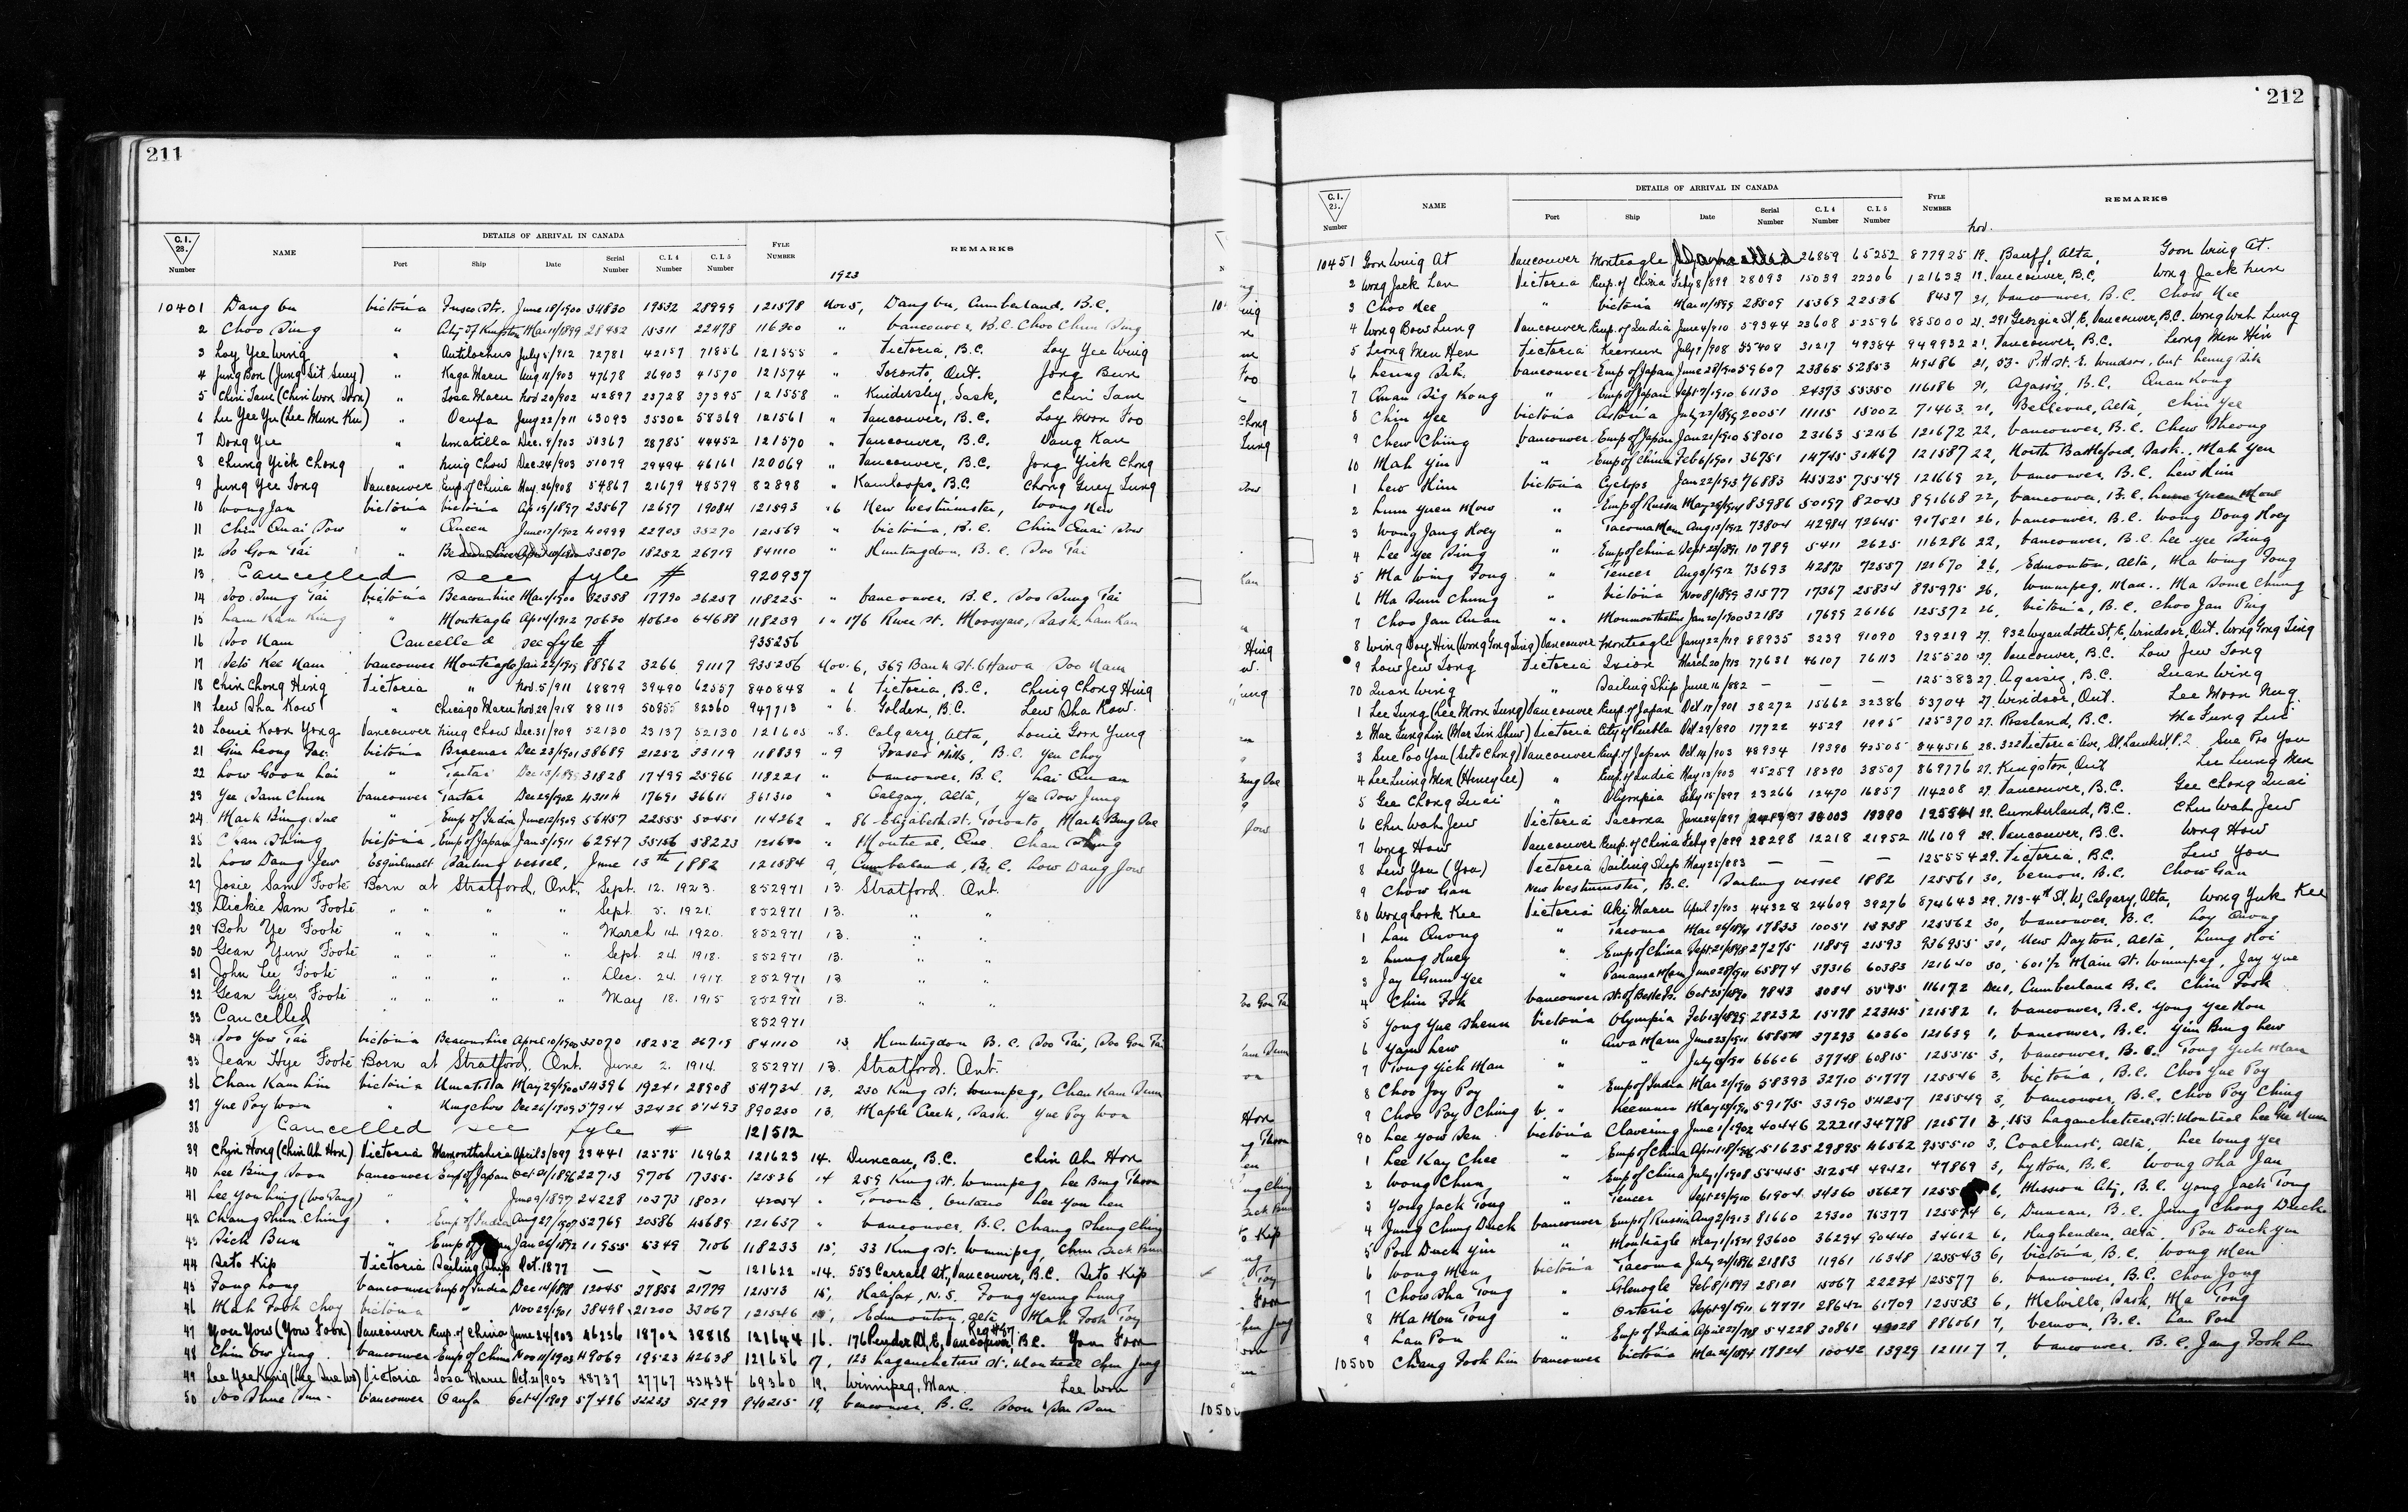 211
C.I. 28. Number NAME DETAILS OF ARRIVAL IN CANADA Port Ship Date Serial Number C.I. 4 Number C.I. 5 Number FYLE NUMBER REMARKS
1923
10401 Dang Gu Victoria June 18/1900 34830 19532 28999 121578 Nov 5, Dang Gu, Cumberland, B.C.
2 Choo Sing " City of Kingston Mar 11/1899 28452 15311 22478 " Vancouver, B.C. Choo Chun Sing
3 Loy Yee Wing " Antilochus July 5/912 72781 42157 71856 121555 " Victoria, B.C. Loy Yee Wing
4 Jung Bon (Jung Sit Suey) " Kaga Maru Aug 11/903 47678 26903 41570 121574 " Toronto, Ont. Jong Bun
5 Chin Tani (Chin Won Don) " Tosa Maru Nov 20/902 42897 23728 37395 121558 " Kindersley, Sask. Chin Tam
6 Lee Yee Yu (Lee Mun Ku) " Oanfa 63093 35302 58369 121561 " Vancouver, B.C. Loy Moon Foo
7 Dong Yee " Umatilla Dec. 9/903 50367 28785 44452 121570 " Vancouver, B.C. Dang Kan
8 Chung Yick Chong " Ning Chow Dec 24/903 51079 29494 46161 120069 " Vancouver, B.C. Jong Yick Chong
9 Jung Yee Tong Vancouver Emp. of China May 26/908 54867 21679 48579 82898 " Kamloops, B.C. Chong Guey Tung
10 Wong Jan Victoria Victoria Ap 19/1897 23567 12697 19084 121593 "6 New Westminster, Wong New
11 Chin Quai Sow " Queen June 17/1902 40999 22703 35270 121569 " Victoria, B.C. Chin Quai Sow
12 So Gon Tai " 33070 18252 26719 841110 " Huntingdon, B.C. Soo Tai
13 Cancelled see fyle # 920937
14 Soo Sung Tai Victoria Beaconshire Mar 1/1900 32358 17790 26257 118225 " Vancouver, B.C. Soo Sung Tai
15 Lam Kan King " Monteagle Apr 14/1912 70630 40620 64688 118239 " 176 River St. Moosejaw, Sask. Lam Kan
16 Soo Nam Cancelled see fyle # 935256
17 Seto Kee Nam Vancouver Monteagle Jan 22/1919 88962 3266 91117 935256 Nov. 6, 369 Bank St. Ottawa Soo Nam
18 Chin Chong Hing Victoria " Nov. 5/911 68879 39490 62557 840848 " 6 Victoria, B.C. Ching Chong Hing
19 Lew Sha Kow " Chicago Maru Nov 29/918 88113 50855 82360 947713 " 6. Golden, B.C. Lew Sha Kow.
20 Louie Koon Yong Vancouver Ning Chow Dec. 31/909 52130 23137 52130 121603 "8. Calgary, Alta, Louie Goon Yung
21 Gin Leong Fai Victoria Braemar Dec 23/1901 38689 21252 33119 118839 " 9 Fraser Mills, B.C. Yen Choy
22 Low Goon Lai " Tartar Dec 13/1899 31828 17499 25966 118221 " Vancouver, B.C. Lai Quan
23 Yee Sam Chun Vancouver Tartar Dec 29/1902 43114 17691 36611 861310 " Calgary, Alta, Yee Sow Jung
24 Mark Bing Sue " Emp. of India June 12/1909 56457 22555 50451 114262 " 86 Elizabeth St. Toronto, Mark Bing Sue
25 Chan Shing Victoria Emp of Japan Jan 5/1911 62947 35156 58223 " Montreal, Que. Chan Shing
26 Low Dang Jew Esquimalt Sailing vessel, June 15th 1882 121584 9, Cumberland, B.C. Low Dang Jow
27 Josie Sam Foote Born at Stratford, Ont. Sept. 12. 1923. 852971 13. Stratford, Ont.
28 Dickie Sam Foote " " " " Sept 5. 1921. 852971 13. " "
29 Boh Ye Foote " " " " March 14. 1920. 852971 13. " "
30 Gean Yuw Foote " " " " Sept. 24. 1918. 852971 13. " "
31 John Lee Foote " " " " Dec. 24. 1917. 852971 13 " "
32 Gean Gye Foote " " " " May 18. 1915 852971 13. " "
33 Cancelled 852971
34 Soo Yow Tai Victoria Beaconshire April 10/1900 33070 18252 26719 841110 13 Huntingdon B.C. Soo Tai, Soo Gon Tai
35 Jean Hye Foote Born at Stratford, Ont. June 2. 1914. 852971 13. Stratford, Ont.
36 Chan Kam Lim Victoria Umatilla May 29/1900 34396 19241 28908 54734 13, 230 King St. Winnipeg, Chan Kam Sum
37 Yue Poy Won " Ningchow Dec 26/1909 57914 32426 51493 890250 13. Maple Creek, Sask. Yue Poy Won
38 Cancelled see fyle # 121512
39 Chin Hong (Chin Ah Hon) Victoria Monmouthshire April 3/897 23441 12575 16962 121623 14. Duncan, B.C. Chin Ah Hon
40 Lee Bing Soon Vancouver Emp of Japan Oct 21/1896 22713 9706 17355 121536 14 259 King St. Winnipeg, Lee Bing Thoon
41 Lee You Ling (Wo Sang) " " June 9/1897 24228 10373 18021 42054 " Toronto, Ontario Lee You Len
42 Chang Shun Ching " Emp of India Aug 27/1907 52769 20586 45689 121657 " Vancouver, B.C. Chang Sheng Ching
43 Sick Bun " Jan 26/1892 11955 5349 7106 118233 15, 33 King St. Winnipeg, Chin Sick Bun
44 Seto Kip Victoria Sailing Ship Oct. 1877 — — — 121622 "14. 553 Carrall St, Vancouver, B.C. Seto Kip
45 Fong Long Vancouver Emp of India Dec 14/1898 12045 27853 21779 121513 15, Halifax, N.S. Fong Yeung Lung
46 Mah Fook Choy Victoria " Nov 29/1901 38498 21200 33067 121546 15, Edmonton, Alta Mah Fook Toy
47 You Yow (Yow Foon) Vancouver Emp. of China June 24/903 46236 18702 38818 121644 16. 176 Pender St. E, Vancouver, B.C. You Foon
48 Chin Ow Jung Vancouver Emp of China Nov 11/1903 49069 19523 42638 121656 17, 123 Lagauchetiere St. Montreal Chin Jung
49 Victoria Tosa Maru Oct. 21/903 48737 27767 43434 69360 19, Winnipeg, Man. Lee Won
50 Vancouver Oanfa Oct 4/1909 57486 32233 51299 940215 19, Vancouver, B.C. Soon San Sun
212
C.I. 28. Number NAME DETAILS OF ARRIVAL IN CANADA Port Ship Date Serial Number C.I. 4 Number C.I. 5 Number FYLE NUMBER REMARKS
Nov.
10451 Goon Wing At Vancouver Monteagle Cancelled 26859 65252 877925 19. Banff, Alta, Goon Wing At.
2 Wong Jack Lun Victoria Emp. of China Feby 8/899 28093 15039 22206 121633 19. Vancouver, B.C. Wong Jack Lun
3 Choo Nee " Victoria Mar 11/1899 28509 15369 22536 8437 21, Vancouver, B.C. Chow Nee
4 Wong Bow Lung Vancouver Emp. of India June 4/910 59344 23608 52596 885000 21. 291 Georgia St. E, Vancouver, B.C. Wong Wah Lung
5 Leong Men Hen Victoria Keemun July 1/908 55408 31217 49384 949932 21, Vancouver, B.C. Leong Men Hin
6 Leung Sik Vancouver Emp of Japan June 28/910 59607 23865 52853 49486 21, 53 Pitt St. E. Windsor, Ont Leung Sik
7 Quan Sig Kong " Emp of Japan Sept 7/1910 61130 24373 53350 116186 21, Agassiz, B.C. Quan Kong
8 Chin Yee Victoria Astoria July 27/1894 20051 11115 15002 71463 21, Bellevue, Alta, Chin Yee
9 Chew Ching Vancouver Emp of Japan Jan 21/1910 58010 23163 52156 121672 22, Vancouver, B.C. Chew Sheong
10 Mah Yin " Emp of China Feb 6/1901 36751 14745 31467 121587 22, North Battleford, Sask. Mah Yen
1 Lew Him Victoria Cyclops Jan 22/1913 76883 45525 75549 121669 22, Vancouver, B.C. Lew Him
2 Lum Yuen Mow " Emp of Russia May 29/1914 83986 50197 82043 891668 22, Vancouver, B.C. Lum Yuen Mow
3 Wong Jang Hoey " Tacoma Maru Aug 13/1912 73804 42984 72645 917521 26, Vancouver, B.C. Wong Dong Hoey
4 Lee Yee Sing " Emp of China Sept 22/1891 10789 5411 2625 116286 22, Vancouver, B.C. Lee Yee Sing
5 Ma Wing Tong " Teucer Aug 3/1912 73693 42873 72557 121670 26, Edmonton, Alta, Ma Wing Tong
6 Ma Sum Chung " Victoria Nov 8/1899 31577 17367 25834 895975 26, Winnipeg, Man. Ma Some Chung
7 Choo Jan Quan " Monmouthshire Jan 20/1900 32183 17699 26166 125372 26, Victoria, B.C. Choo Jan Ping
8 Wing Doye Hin (Wong Gong Ting) Vancouver Monteagle Jany 22/919 88935 3239 91090 939219 27. 932 Wyandotte St. E, Windsor, Ont. Wong Gong Ting
9 Low Jew Tong Victoria Ixion March 20/913 77631 46107 76113 125520 27. Vancouver, B.C. Low Jew Tong
70 Quan Wing " Sailing Ship June 16/882 — — — 125383 27. Agassiz, B.C. Quan Wing
1 Lee Tung (Lee Moon Lung) Vancouver Emp. of Japan Oct 17/901 38272 15662 32386 53704 27. Windsor, Ont. Lee Moon Nug
2 Mar Lung Lin (Mar Sin Shew) Victoria City of Puebla Oct 29/890 17722 4529 1995 125370 27. Rossland, B.C. Ma Lung Lin
3 Sue Poo You (Seto Chong) Vancouver Emp. of Japan Oct. 14/903 48934 19390 42505 844516 28. 322 Victoria Ave, St. Lambert, P.Q. Sue Poo You
4 Lee Luing Men (Henry Lee) " Emp. of India May 13/903 45259 18390 38507 869776 27. Kingston, Ont Lee Leung Men
5 Gee Chong Quai " Olympia July 15/897 23266 12470 16857 114208 27. Vancouver, B.C. Gee Chong Quai
6 Chu Wah Jew Victoria Tacoma June 24/897 19390 125541 29. Cumberland, B.C. Chu Wah Jew
7 Wong How Vancouver Emp. of China Feby 9/899 28298 12218 21952 116109 29. Vancouver, B.C. Wong How
8 Lew You (You) Victoria Sailing Ship May 25/883 — — — 125554 29. Victoria, B.C. Lew You
9 Chow Gan New Westminster, B.C. Sailing vessel 1882 125561 30, Vernon, B.C. Chow Gan
80 Wong Look Kee Victoria Aki Maru April 2/903 44328 24609 39276 874643 29. 713-4th St. W, Calgary, Alta, Wong Yuk Kee
1 Lau Quong " Tacoma Mar 26/1894 17833 10051 13938 125562 30, Vancouver, B.C. Loy Quong
2 Lung Huey " Emp of China Sept 21/1898 27275 11859 21593 936955 30, New Dayton, Alta, Lung Hoi
3 Jay Gum Yee " Panama Maru June 28/1911 65874 37316 60383 121640 30, 601½ Main St. Winnipeg, Jay Yue
4 Chin Fok Vancouver Oct 25/1890 7843 3084 116172 Dec 1, Cumberland B.C. Chin Fook
5 Yong Yue Shenn Victoria Olympia Feb 13/1899 28232 15178 22345 121582 1, Vancouver, B.C. Yong Yee Hon
6 Yam Lew " Awa Maru June 23/1911 37293 60360 121639 1, Vancouver, B.C. Yim Bing Lew
7 Tong Yick Man " " 66606 37748 60815 125515 3, Vancouver, B.C. Tong Yick Man
8 Choo Joy Poy " Emp of India Mar 21/1910 58393 32710 51777 125546 3, Victoria, B.C. Choo Yue Poy
9 Choo Poy Ching " Keemun May 13/1910 59175 33190 54257 125549 3, Vancouver, B.C. Choo Poy Ching
90 Lee Yow Sen Victoria Clavering June 1/1902 40446 22211 34778 121571 3, 153 Lagauchetiere St. Montreal
1 Lee Kay Chee " Emp of China 51625 29895 46562 955510 3, Coalhurst, Alta, Lee Wing Yee
2 Wong Chun " Emp of China July 1/1908 55445 31254 49421 47869 3, Lytton, B.C. Wong Sha Jan
3 Yong Jack Tong " Teucer Sept 29/1910 61904 34360 56627 6, Mission City, B.C. Yong Jack Tong
4 Jung Chung Duck Vancouver Emp of Russia Aug 2/1913 81660 29300 76377 125574 6, Duncan, B.C. Jung Chong Duck
5 Pon Duck Yin " Monteagle May 1/1921 93600 36294 90440 34612 6, Hughenden, Alta. Pon Duck Yin
6 Wong Men Victoria Tacoma July 24/1896 21883 11961 16348 125543 6, Victoria, B.C. Wong Men
7 Chow Sha Tong " Glenogle Feb 8/1899 28121 15067 22234 125577 6. Vancouver, B.C. Chou Jong
8 Ma Mon Tong " Osteric Sept 9/1911 67771 28642 61709 125583 6, Melville, Sask, Ma Tong
9 Lan Pon " Emp of India April 22/1908 54228 30861 49028 886061 7, Vernon, B.C. Lan Pon
10500 Chang Fook Lim Vancouver Victoria Mar 26/1894 17824 10042 13929 121117 7, Vancouver, B.C. Jang Fook Lim